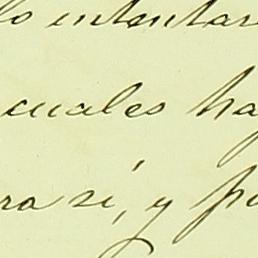 lo intentar
cuales ha
ra sí, y p